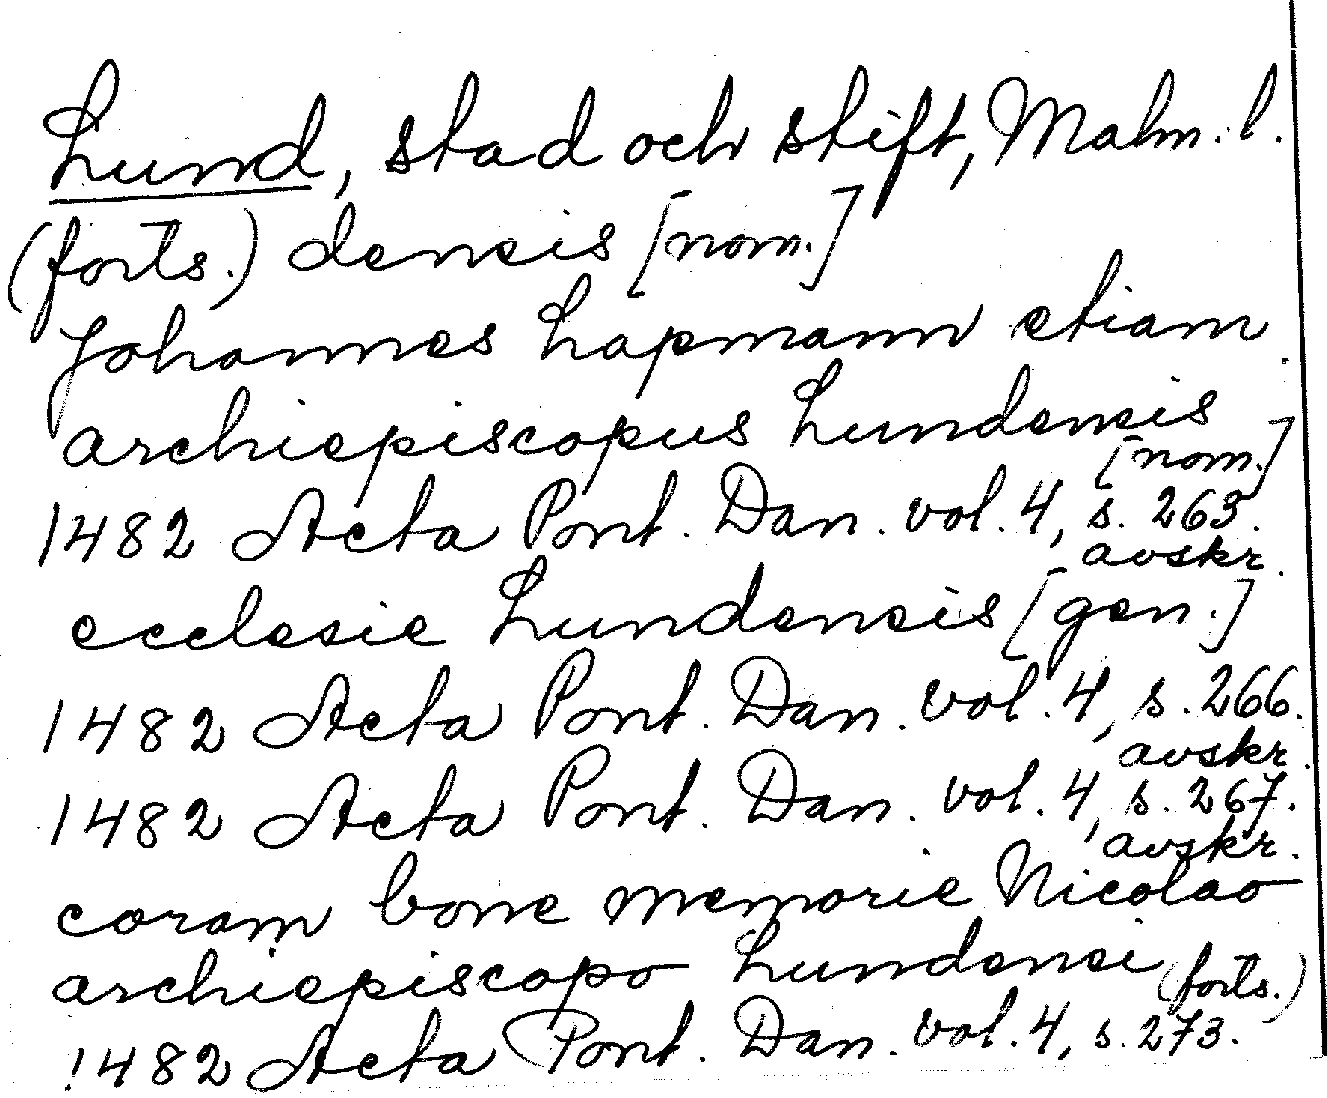 Lund, stad och stift, Malm. l.
(forts.) densis [nom.]
Johannes Lapmann etiam
archiepiscopus Lundensis
[nom.]
1482 Acta Pont. Dan. vol. 4, s. 263.
avskr.
ecclesie Lundensis [gen.]
1482 Acta Pont. Dan. vol. 4, s. 266.
avskr.
1482 Acta Pont. Dan. vol. 4, s. 267.
avskr.
coram bone memorie Nicolao
archiepiscopo Lundensi (forts.)
1482 Acta Pont. Dan. vol. 4, s. 273.